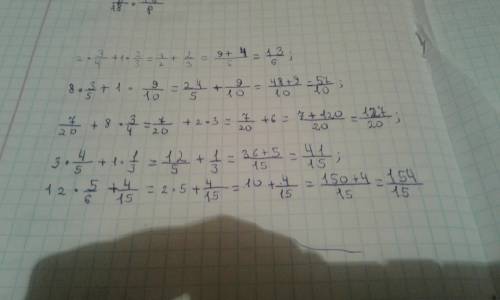 2 · 3/4 + 1 · 2/3 = 3/2 + 2/3 = 9+4/6 = 13/6;
8 · 3/5 + 1 · 9/10 = 24/5 + 9/10 = 48+9/10 = 57/10;
7/20 + 8 · 3/4 = 7/20 + 2·3 = 7/20 + 6 = 7+120/20 = 127/20;
3 · 4/5 + 1 · 1/3 = 12/5 + 1/3 = 36+5/15 = 41/15;
12 · 5/6 + 4/15 = 2·5 + 4/15 = 10 + 4/15 = 150+4/15 = 154/15